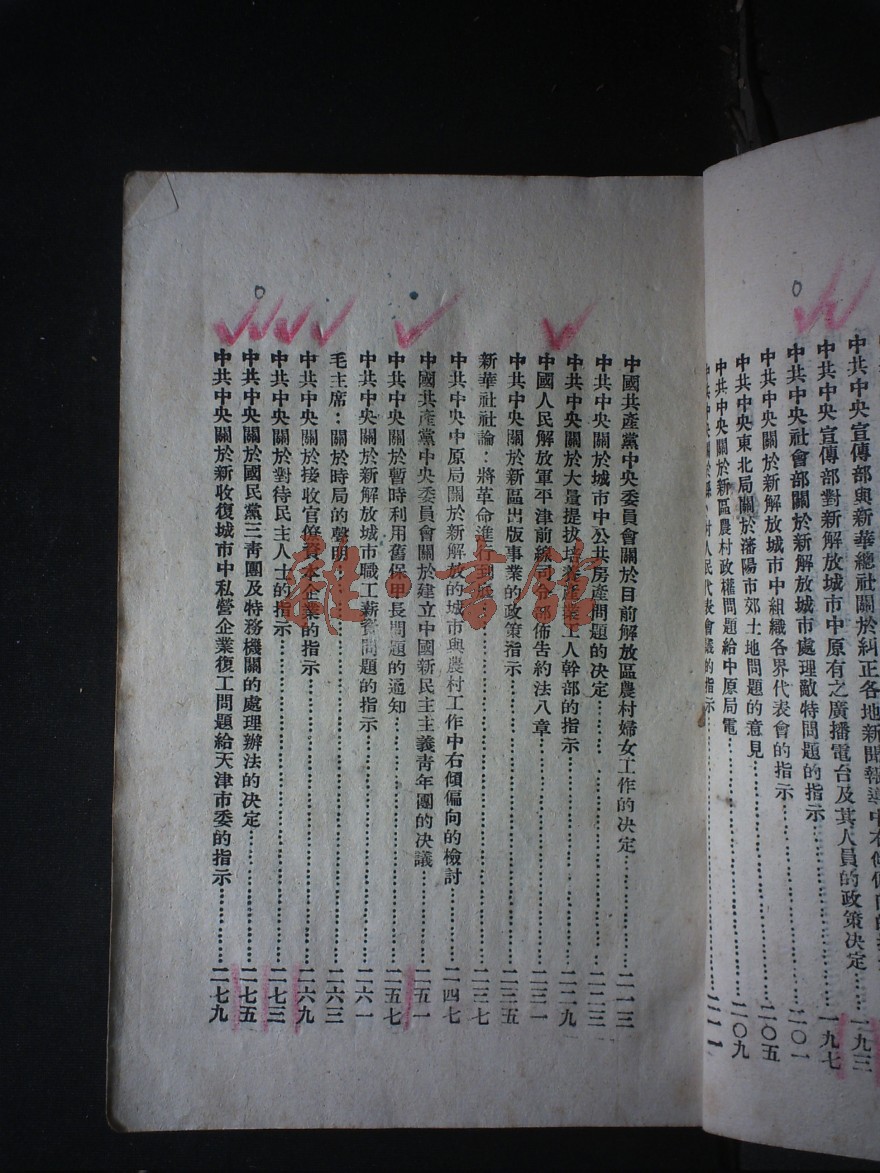 中共中央宣傳部與新華總社關於糾正各地新聞報導中
中共中央宣傳部對新解放城市中原有之廣播電台及其人員的政策決定……一九三
中共中央社會部關於新解放城市處理敵特問題的指示……一九七
中共中央關於新解放城市中組織各界代表會的指示……二〇一
中共中央東北局關於瀋陽市郊土地問題的意見……二〇五
中共中央關於新區農村政權問題給中原局電……二〇九
中共中央關於縣、村人民代表會議的指示……二一一
中國共產黨中央委員會關於目前解放區農村婦女工作的決定……二一三
中共中央關於城市中公共房產問題的決定……二二三
中共中央關於大量提拔培養產業工人幹部的指示……二二九
中國人民解放軍平津前線司令部佈告約法八章……二三一
中共中央關於新區出版事業的政策指示……二三五
新華社社論：將革命進行到底……二三七
中共中央中原局關於新解放的城市與農村工作中右傾偏向的檢討……二四七
中國共產黨中央委員會關於建立中國新民主主義青年團的決議……二五一
中共中央關於暫時利用舊保甲長問題的通知……二五七
中共中央關於新解放城市職工薪資問題的指示……二六一
毛主席：關於時局的聲明……二六三
中共中央關於接收官僚資本企業的指示……二六九
中共中央關於對待民主人士的指示……二七三
中共中央關於國民黨三青團及特務機關的處理辦法的決定……二七五
中共中央關於新收復城市中私營企業復工問題給天津市委的指示……二七九